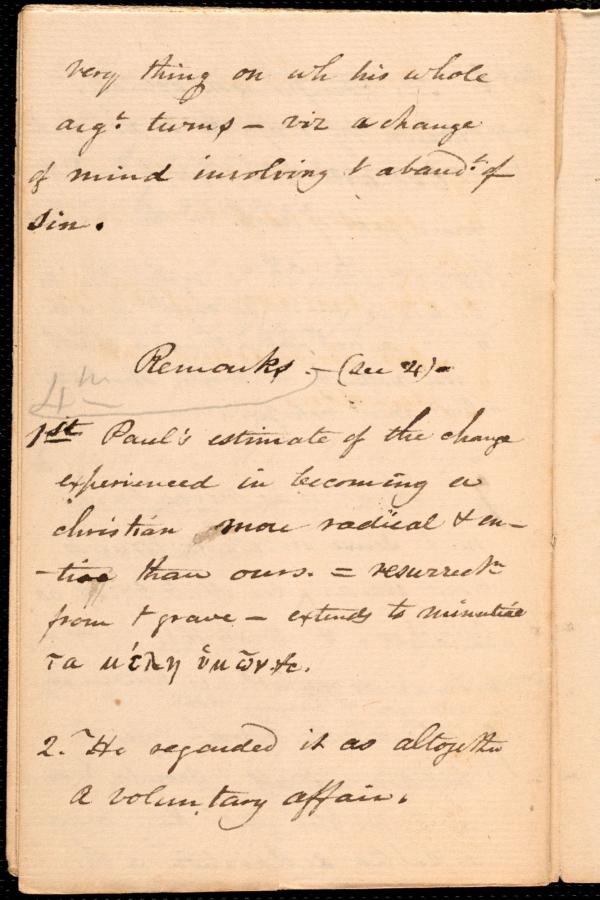 very thing on wh his whole
argt. turns – viz a change
of mind involving t abandt. of
sin.
Remarks – (see 4) –
4th
1st Paul's estimate of the change
experienced in becoming a
christian more radical & en-
-tire than ours. = resurrectn
from t grave – extends to minutiae
τα μέλη ὑμῶν &c.
2. He regarded it as altogether
a voluntary affair.